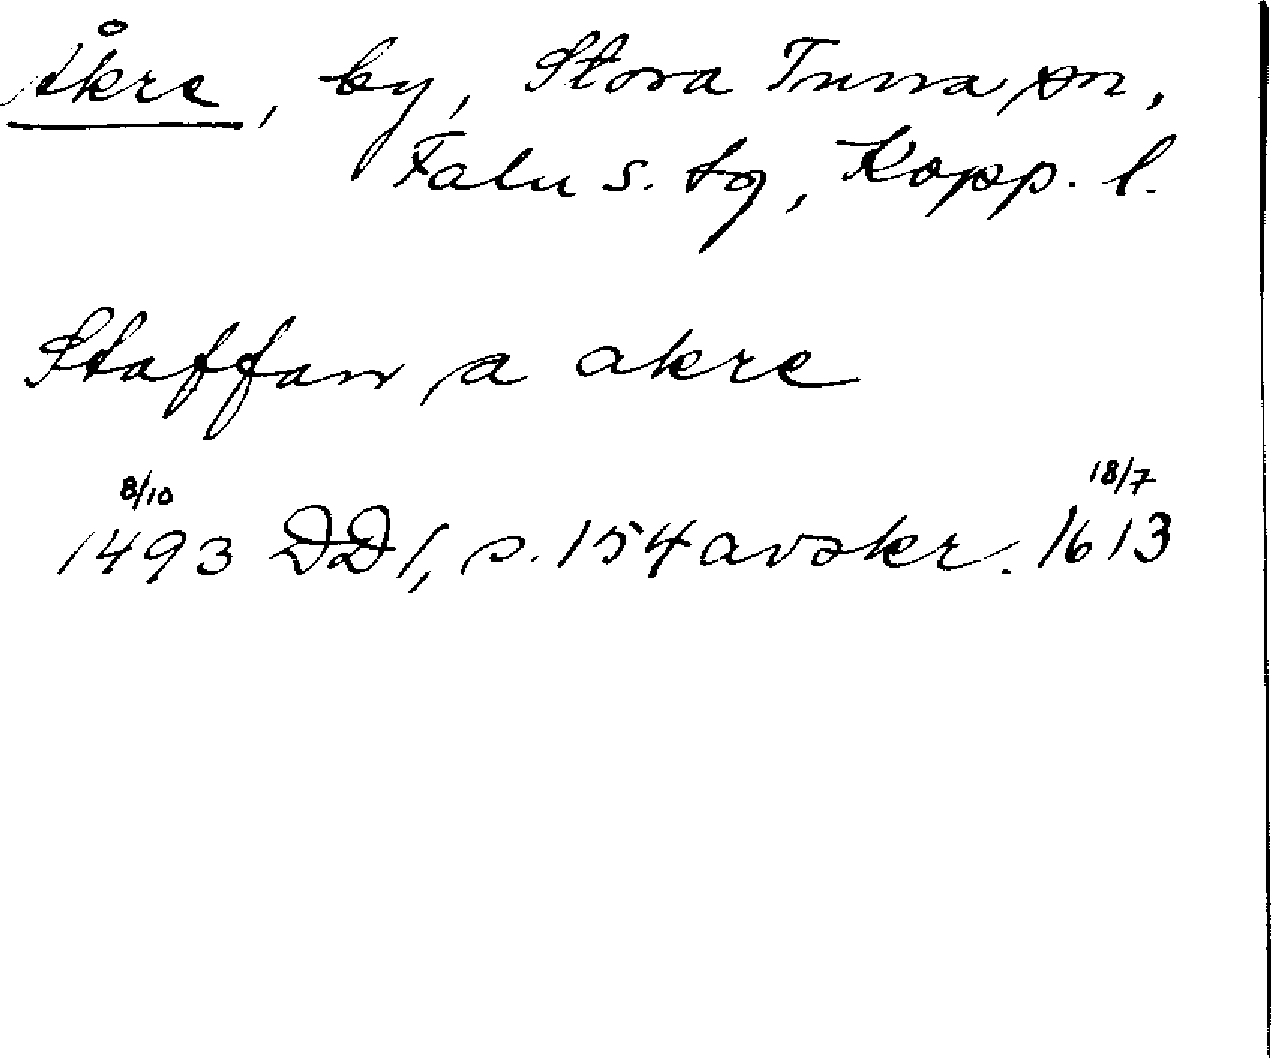 Åkre, by, Stora Tuna sn,
Falu s. tg, Kopp. l.
Staffan a akre
8/10 18/7
1493 DD1, s. 154 avskr. 1613